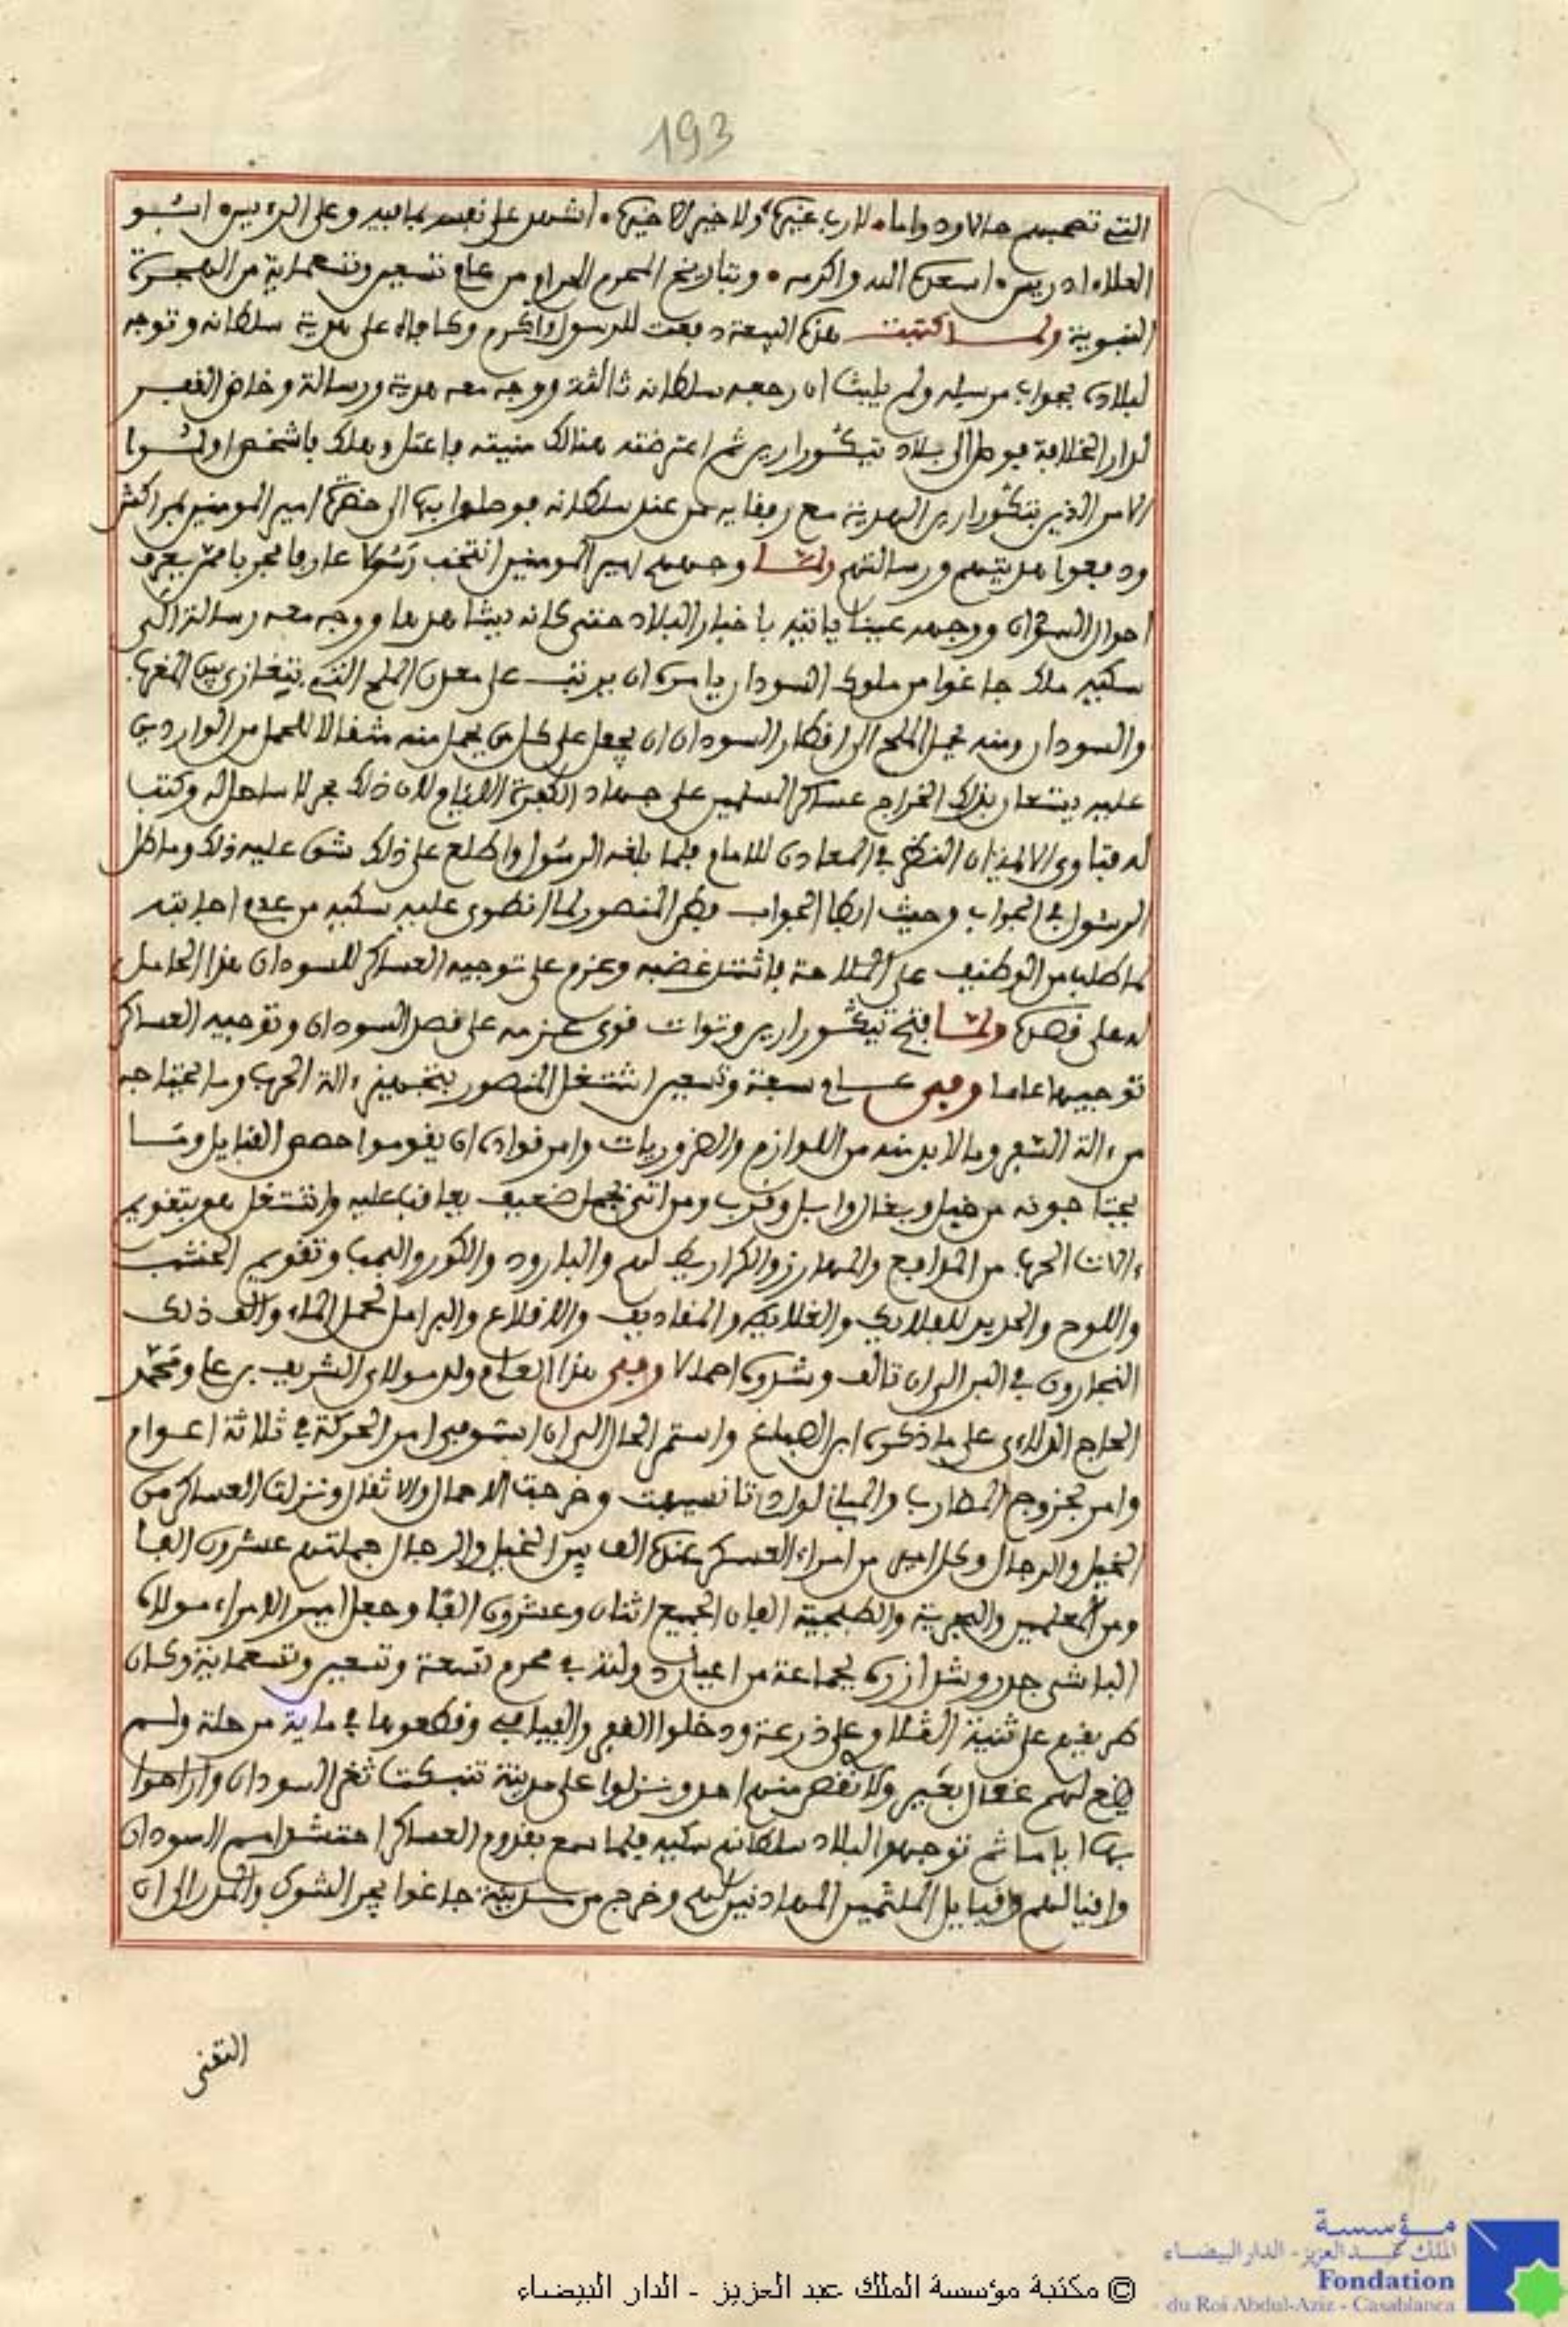 193
التي تصحبهم حالا ودواما، لا رب غيره، ولا خير الا خيره، أشهد على نفسه بما فيه وعلى الرئيس ابـو
العلاء ادريس اسعده الله واكرمه، وبتاريخ المحرم الحرام من عام تسعين وتسعماية من الهجرة
النبوية ولما كتبت هذه البيعة دفعت للرسول واكرم وكافاه على هدية سلطانه وتوجه
لبلاده بجواب مرسله ولم يلبث ان رجعه سلطانه ثالثة ووجه معه هدية ورسالة وخاض القفر
لدار الخلافة فوصل الى بلاد تيكورارين ثم اعترضته هنالك منيته فاعتل وهلك فاشخص اولـوا
الامر الذين بتكورارين الهدية مع رفقايه من عند سلطانه فوصلوا بها الى حضرة امير المومنين بمراكش
ودفعوا هديتهم ورسالتهم ولما وجههم امير المومنين انتخب رسولا عارفا مجربا ممن يعرف
احوال السودان ووجهه عينا ياتيه باخبار البلاد حتى كانه يشاهدها ووجه معه رسالة الى
سكيه ملك جاغوا من ملوك السودان يامره ان يرتب على معدن الملح التي بتغازى بين المغرب
والسودان ومنه يحمل الملح الى اقطار السودان ان يجعل على كل من يحمل منه مثقالا للحمل من الواردين
عليه يستعان بذلك الخراج عساكر المسلمين على جهاد الكفرة اللئام لان ذلك بحر لا ساحل له وكتب
له فتاوى الائمة ان النظر في المعادن للامام فلما بلغه الرسول واطلع على ذلك شق عليه ذلك وماطل
الرسول في الجواب وحيث ابطا الجواب فطن المنصور لما انطوى عليه سكيه من عدم اجابته
لما طلب من التوظيف على الملاحة فاشتد غضبه وعزم على توجيه العساكر للسودان هذا الحامل
له على قصده ولما فتح تيكورارين وتوات قوى عزمه على قصد السودان وتوجيه العساكر
توجيها عاما وفي عام سبعة وتسعين اشتغل المنصور بتجهيز ءالة الحرب وما يحتاجه
من ءالة السفر وما لا بد منه من اللوازم والضروريات وامر قواده ان يقوموا حصص القبايل ومـا
يحتاجونه من خيل وبغال وابل وقرب ومن اتى بجمل ضعيف يعاقب عليه واشتغل هو بتقويم
ءالات الحرب من المدافع والمهارز والكراريط لهم والبارود والكور والبمب وتقويم الخشب
واللوح والحديد للفلايك والغلايط والمقاديف والاقلاع والبراميل لحمل الماء والف ذلك
النجارون في البر الى ان تالف وشدوه احمالا وفي هذا العام ولد مولاي الشريف بن علي ومحمد
الحاج الدلاءي على ما ذكره ابن الصباغ واستمر الحال الى ان استوفى امر الحركة في ثلاثة اعوام
وامر بخروج المضارب والمباني لوادي تانسيفت وخرجت الاحمال والاثقال ونزلت العساكر من
الخيل والرجال وكل امير من امراء العسكر عنده الف بين الخيل والرجال جملتهم عشرون الفا
ومن المعلمين والبحرية والطبجية الفان الجميع اثنان وعشرون الفا وجعل امير الامراء مولاه
الباشى جدر وشد ازره بجماعة من اعيان دولته في محرم تسعة وتسعين وتسعماية وكان
طريقهم على ثنية الكلاوي على ذرعة ودخلوا القفر والفيافي وقطعوها في ماية مرحلة ولـم
يضع لهم عقال بعير ولا نقص منهم احد ونزلوا على مدينة تنبكت ثغر السودان واراحوا
بها اياما ثم توجهوا لبلاد سلطانهم سكيه فلما سمع بقدوم العساكر احتشد امم السودان
وافيالهم وقبايل الملثمين المهادنين لهم وخرج من مدينة جاغوا يجر الشوك والمدر الى ان
التقى
© مكتبة مؤسسة الملك عبد العزيز - الدار البيضاء
مؤسسة
الملك عبد العزيز - الدار البيضاء
Fondation
du Roi Abdul-Aziz - Casablanca